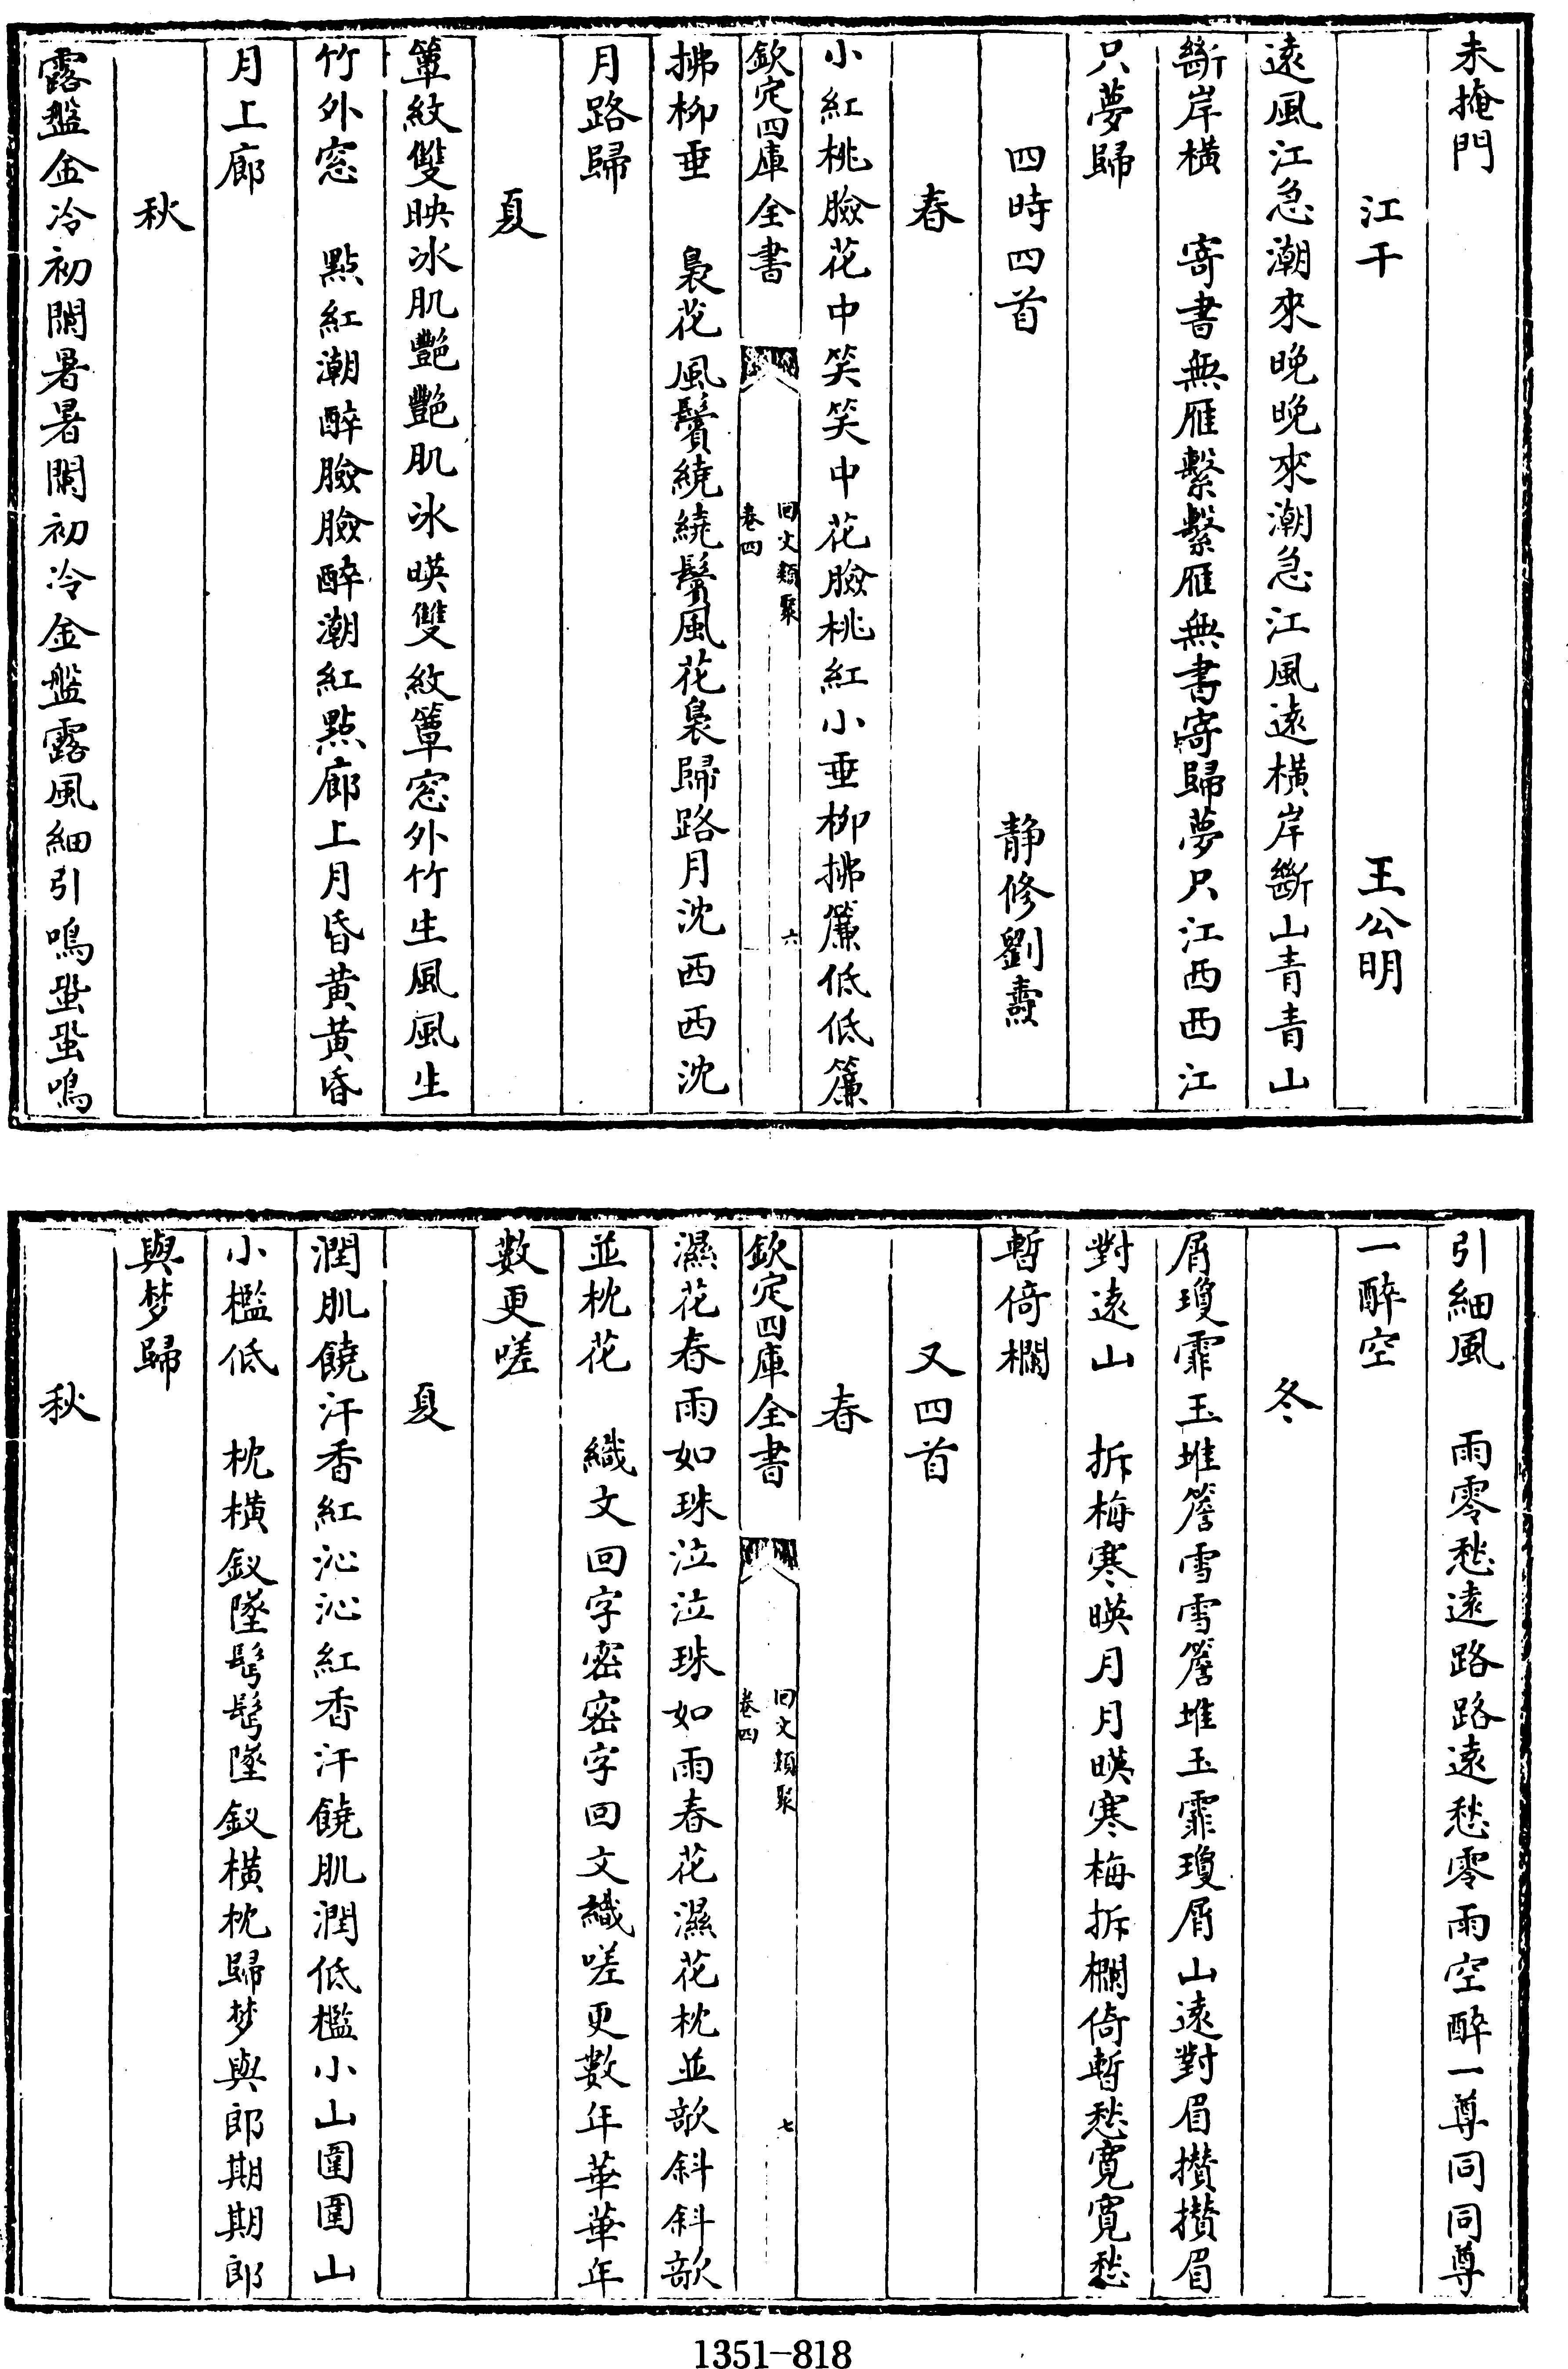 未掩門
江干　王公明
遠風江急潮來晚晚來潮急江風遠橫岸斷山青青山
斷岸橫　寄書無雁繫繫雁無書寄歸夢只江西西江
只夢歸
四時四首　静修劉燾
春
小紅桃臉花中笑笑中花臉桃紅小垂柳拂簾低低簾
欽定四庫全書
回文類聚
卷四
六
拂柳垂　裊花風鬢繞繞鬢風花裊歸路月沈西西沈
月路歸
夏
簟紋雙映冰肌艷艷肌冰暎雙紋簟窓外竹生風風生
竹外窓　點紅潮醉臉臉醉潮紅點廊上月昏黄黄昏
月上廊
秋
露盤金冷初闌暑暑闌初冷金盤露風細引鳴蛩蛩鳴
引細風　雨零愁遠路路遠愁零雨空醉一尊同同尊
一醉空
冬
屑瓊霏玉堆簷雪雪簷堆玉霏瓊屑山遠對眉攢攢眉
對遠山　拆梅寒暎月月暎寒梅拆欄倚暫愁寛寛愁
暫倚欄
又四首
春
欽定四庫全書
回文類聚
卷四
七
濕花春雨如珠泣泣珠如雨春花濕花枕並欹斜斜欹
並枕花　織文回字密密字回文織嗟更數年華華年
數更嗟
夏
潤肌饒汗香紅沁沁紅香汗饒肌潤低檻小山圍圍山
小檻低　枕橫釵墜髩髩墜釵橫枕歸梦與郎期期郎
與梦歸
秋
1351-818